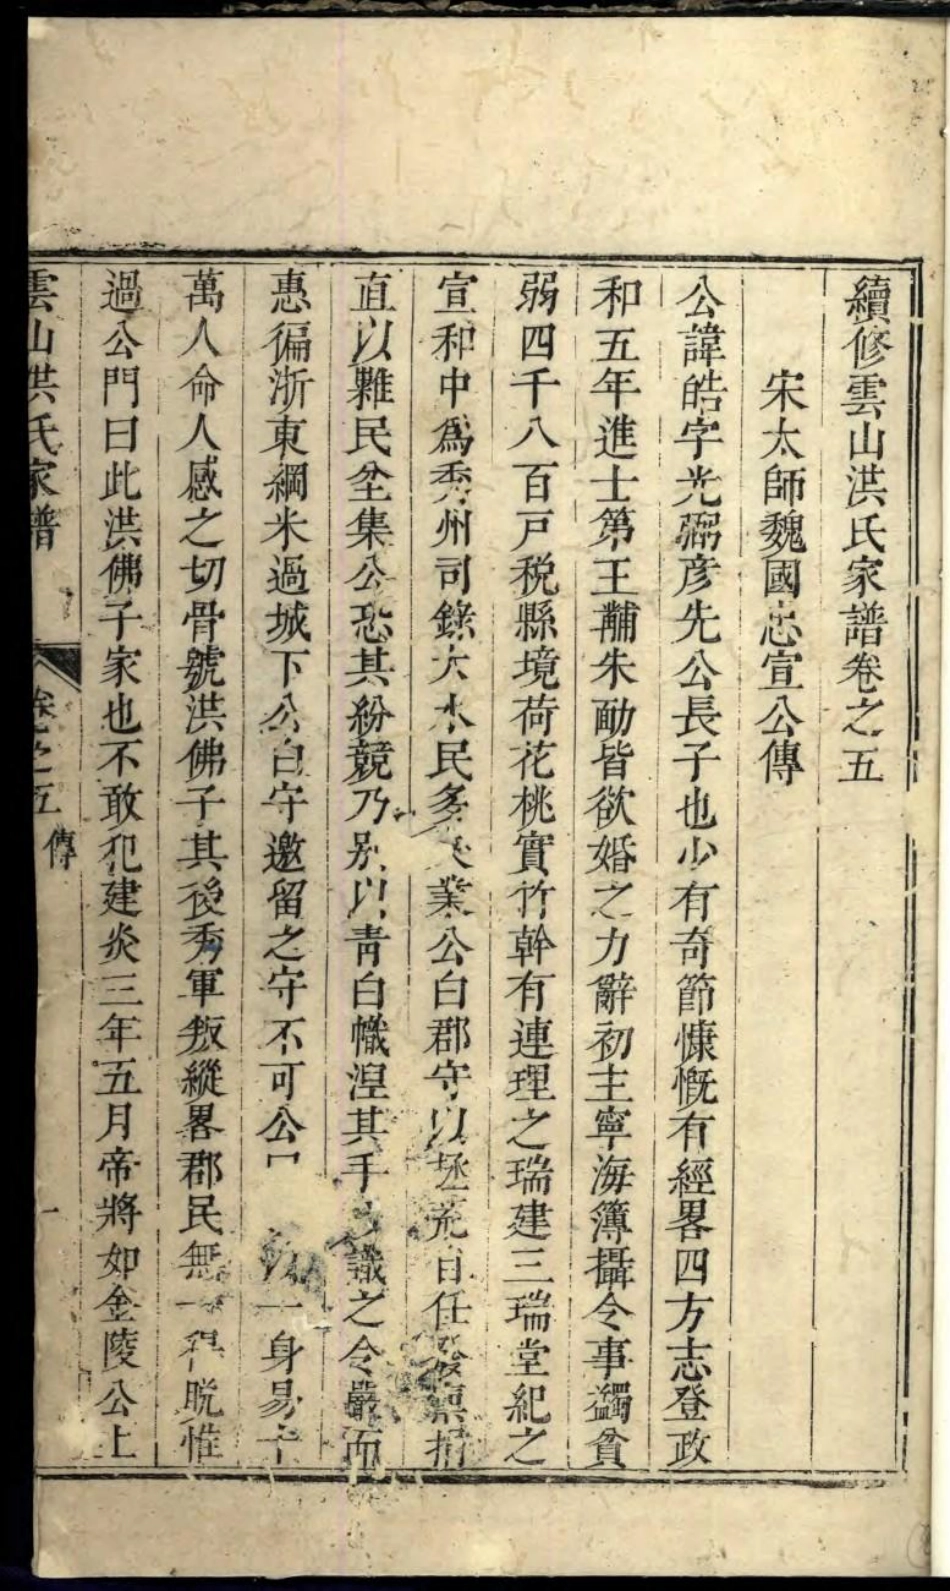 續修雲山洪氏家譜卷之五
宋太師魏國忠宣公傳
公諱皓字光弼彦先公長子也少有奇節慷慨有經畧四方志登政
和五年進士第王黼朱勔皆欲婚之力辭初主寧海簿攝令事蠲貧
弱四千八百戸税縣境荷花桃實竹幹有連理之瑞建三瑞堂紀之
宣和中爲秀州司錄大水民多失業公白郡守以拯荒自任發廩損
直以糶民坌集公恐其紛競乃别以青白幟涅其手識之令嚴而
惠徧浙東綱米過城下公白守邀留之守不可公一身易十
萬人命人感之切骨號洪佛子其後秀軍叛縱畧郡民無一得脱惟
過公門曰此洪佛子家也不敢犯建炎三年五月帝將如金陵公上
雲山洪氏家譜
卷之五
傳
一